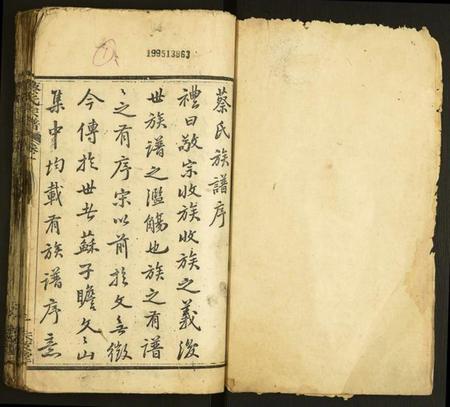 199513863
蔡氏族譜序
禮曰敬宗收族收族之義後
世族譜之濫觴也族之有譜
之有序宗以前於文無徵
今傳於世者蘇子瞻文文山
集中均載有族譜序意